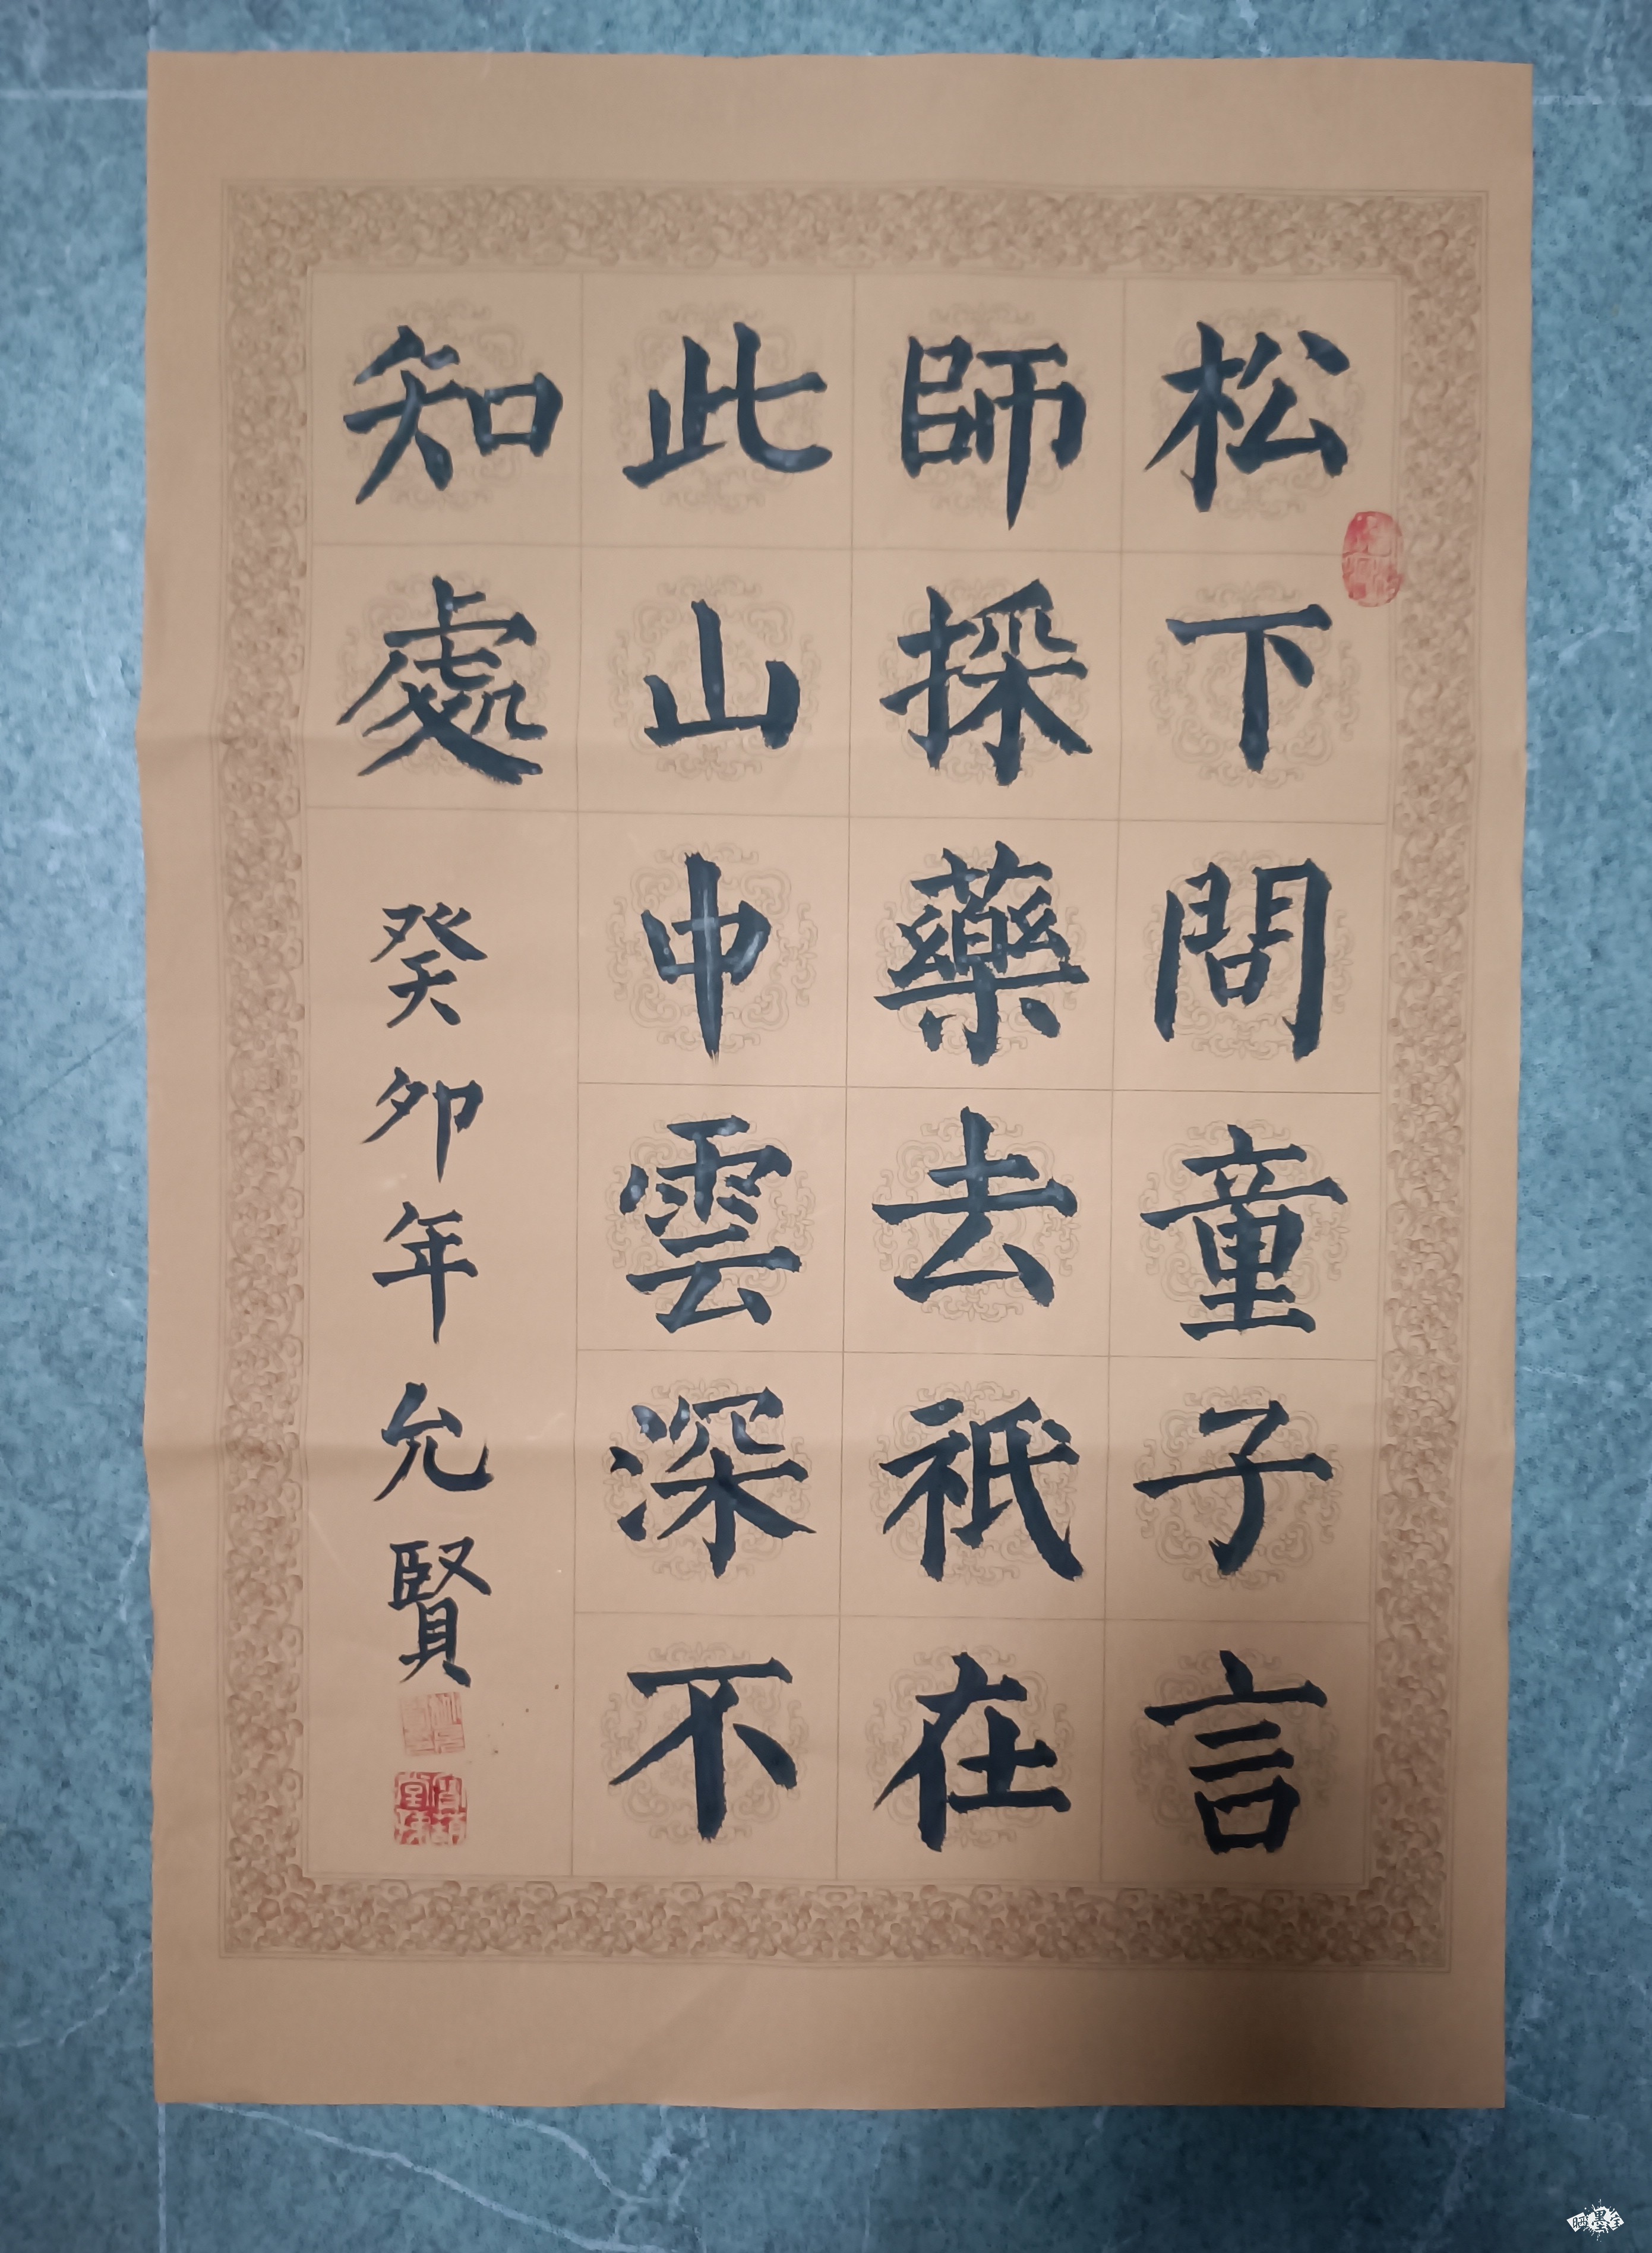 松下問童子言
師採藥去祇在
此山中雲深不
知處
癸卯年允賢